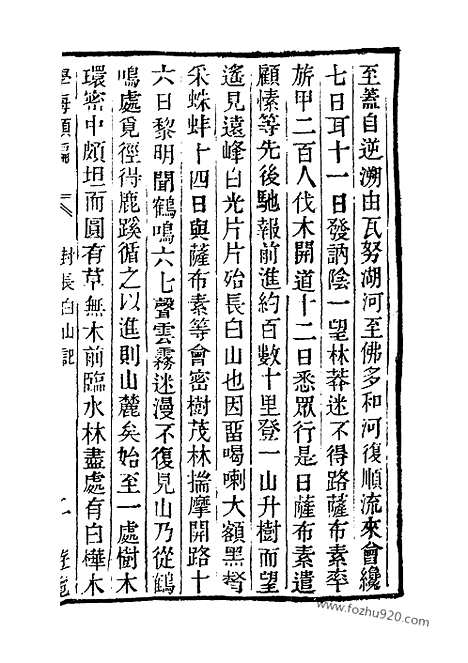 至蓋自逆溯由瓦努湖河至佛多和河復順流來會纔
七日耳十一日發訥陰一望林莽迷不得路薩布素率
旂甲二百人伐木開道十二日悉眾行是日薩布素遣
顧慷等先後馳報前進約百數十里登一山升樹而望
遙見遠峰白光片片始長白山也因畱噶喇大額黑
采蛛蚌十四日與薩布素等會密樹茂林揣摩開路十
六日黎明聞鶴鳴六七聲雲霧迷漫不復見山乃從鶴
鳴處覓徑得鹿蹊循之以進則山麓矣始至一處樹木
環密中頗坦而圓有草無木前臨水林盡處有白樺木
學海類編
封長白山記
二
遊覽
www.fozhu920.com